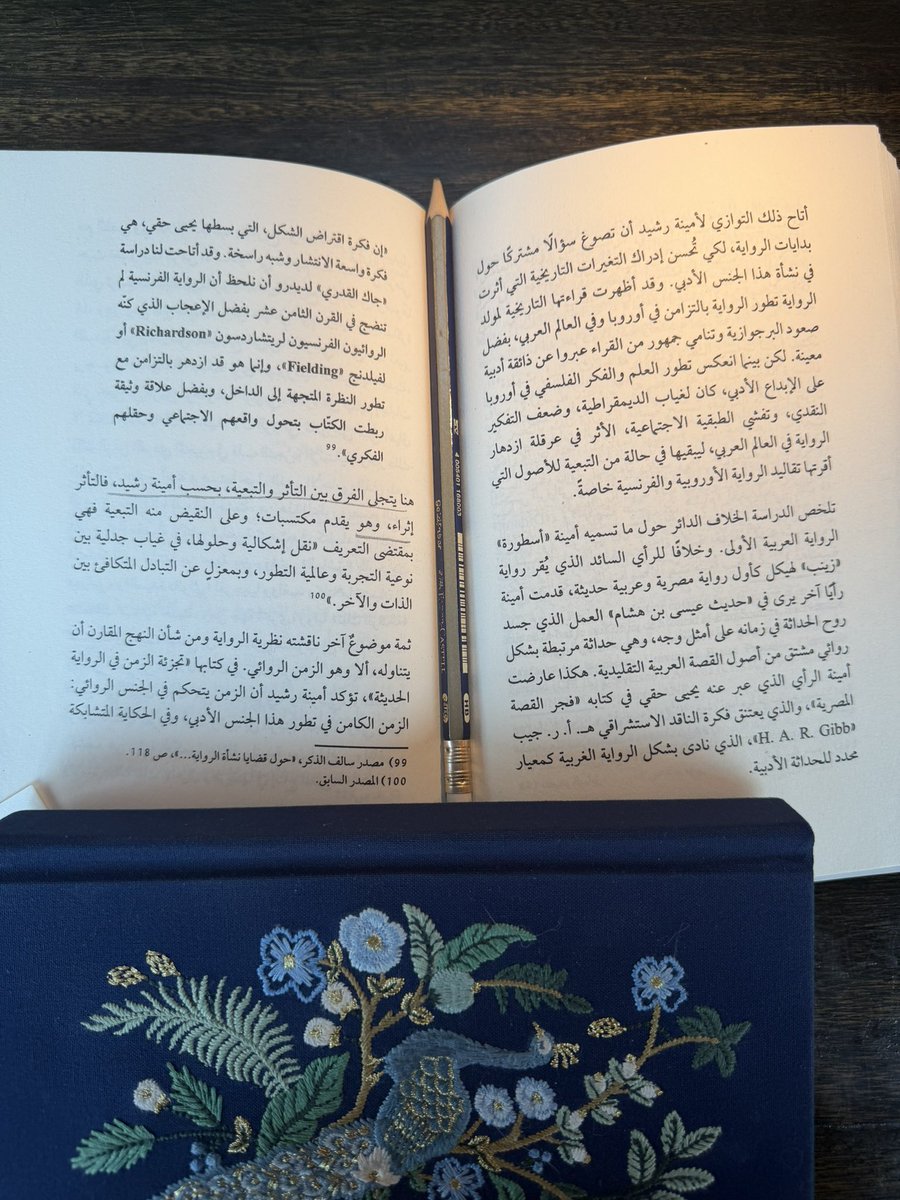 أتاح ذلك التوازي لأمينة رشيد أن تصوغ سؤالًا مشتركًا حول
بدايات الرواية، لكي تُحسن إدراك التغيرات التاريخية التي أثرت
في نشأة هذا الجنس الأدبي. وقد أظهرت قراءتها التاريخية لمولد
الرواية تطور الرواية بالتزامن في أوروبا وفي العالم العربي، بفضل
صعود البرجوازية وتنامي جمهور من القراء عبروا عن ذائقة أدبية
معينة. لكن بينما انعكس تطور العلم والفكر الفلسفي في أوروبا
على الإبداع الأدبي، كان لغياب الديمقراطية، وضعف التفكير
النقدي، وتفشي الطبقية الاجتماعية، الأثر في عرقلة ازدهار
الرواية في العالم العربي، ليبقيها في حالة من التبعية للأصول التي
أقرتها تقاليد الرواية الأوروبية والفرنسية خاصةً.
تلخص الدراسة الخلاف الدائر حول ما تسميه أمينة «أسطورة»
الرواية العربية الأولى. وخلافًا للرأي السائد الذي يُقر رواية
«زينب» لهيكل كأول رواية مصرية وعربية حديثة، قدمت أمينة
رأيًا آخر يرى في «حديث عيسى بن هشام» العمل الذي جسد
روح الحداثة في زمانه على أمثل وجه، وهي حداثة مرتبطة بشكل
روائي مشتق من أصول القصة العربية التقليدية. هكذا عارضت
أمينة الرأي الذي عبر عنه يحيى حقي في كتابه «فجر القصة
المصرية»، والذي يعتنق فكرة الناقد الاستشراقي هـ. أ. ر. جيب
«H. A. R. Gibb»، الذي نادى بشكل الرواية الغربية كمعيار
محدد للحداثة الأدبية.
«إن فكرة اقتراض الشكل، التي بسطها يحيى حقي، هي
فكرة واسعة الانتشار وشبه راسخة. وقد أتاحت لنا دراسة
«جاك القدري» لديدرو أن نلحظ أن الرواية الفرنسية لم
تنضج في القرن الثامن عشر بفضل الإعجاب الذي كنّه
الروائيون الفرنسيون لريتشاردسون «Richardson» أو
لفيلدنج «Fielding»، وإنما هو قد ازدهر بالتزامن مع
تطور النظرة المتجهة إلى الداخل، وبفضل علاقة وثيقة
ربطت الكتّاب بتحول واقعهم الاجتماعي وحقلهم
الفكري».99
هنا يتجلى الفرق بين التأثر والتبعية، بحسب أمينة رشيد، فالتأثر
إثراء، وهو يقدم مكتسبات؛ وعلى النقيض منه التبعية فهي
بمقتضى التعريف «نقل إشكالية وحلولها، في غياب جدلية بين
نوعية التجربة وعالمية التطور، وبمعزلٍ عن التبادل المتكافئ بين
الذات والآخر.»100
ثمة موضوعٌ آخر ناقشته نظرية الرواية ومن شأن النهج المقارن أن
يتناوله، ألا وهو الزمن الروائي. في كتابها «تجزئة الزمن في الرواية
الحديثة»، تؤكد أمينة رشيد أن الزمن يتحكم في الجنس الروائي:
الزمن الكامن في تطور هذا الجنس الأدبي، وفي الحكاية المتشابكة
99) مصدر سالف الذكر، «حول قضايا نشأة الرواية...»، ص 118.
100) المصدر السابق.
4 005401 168003